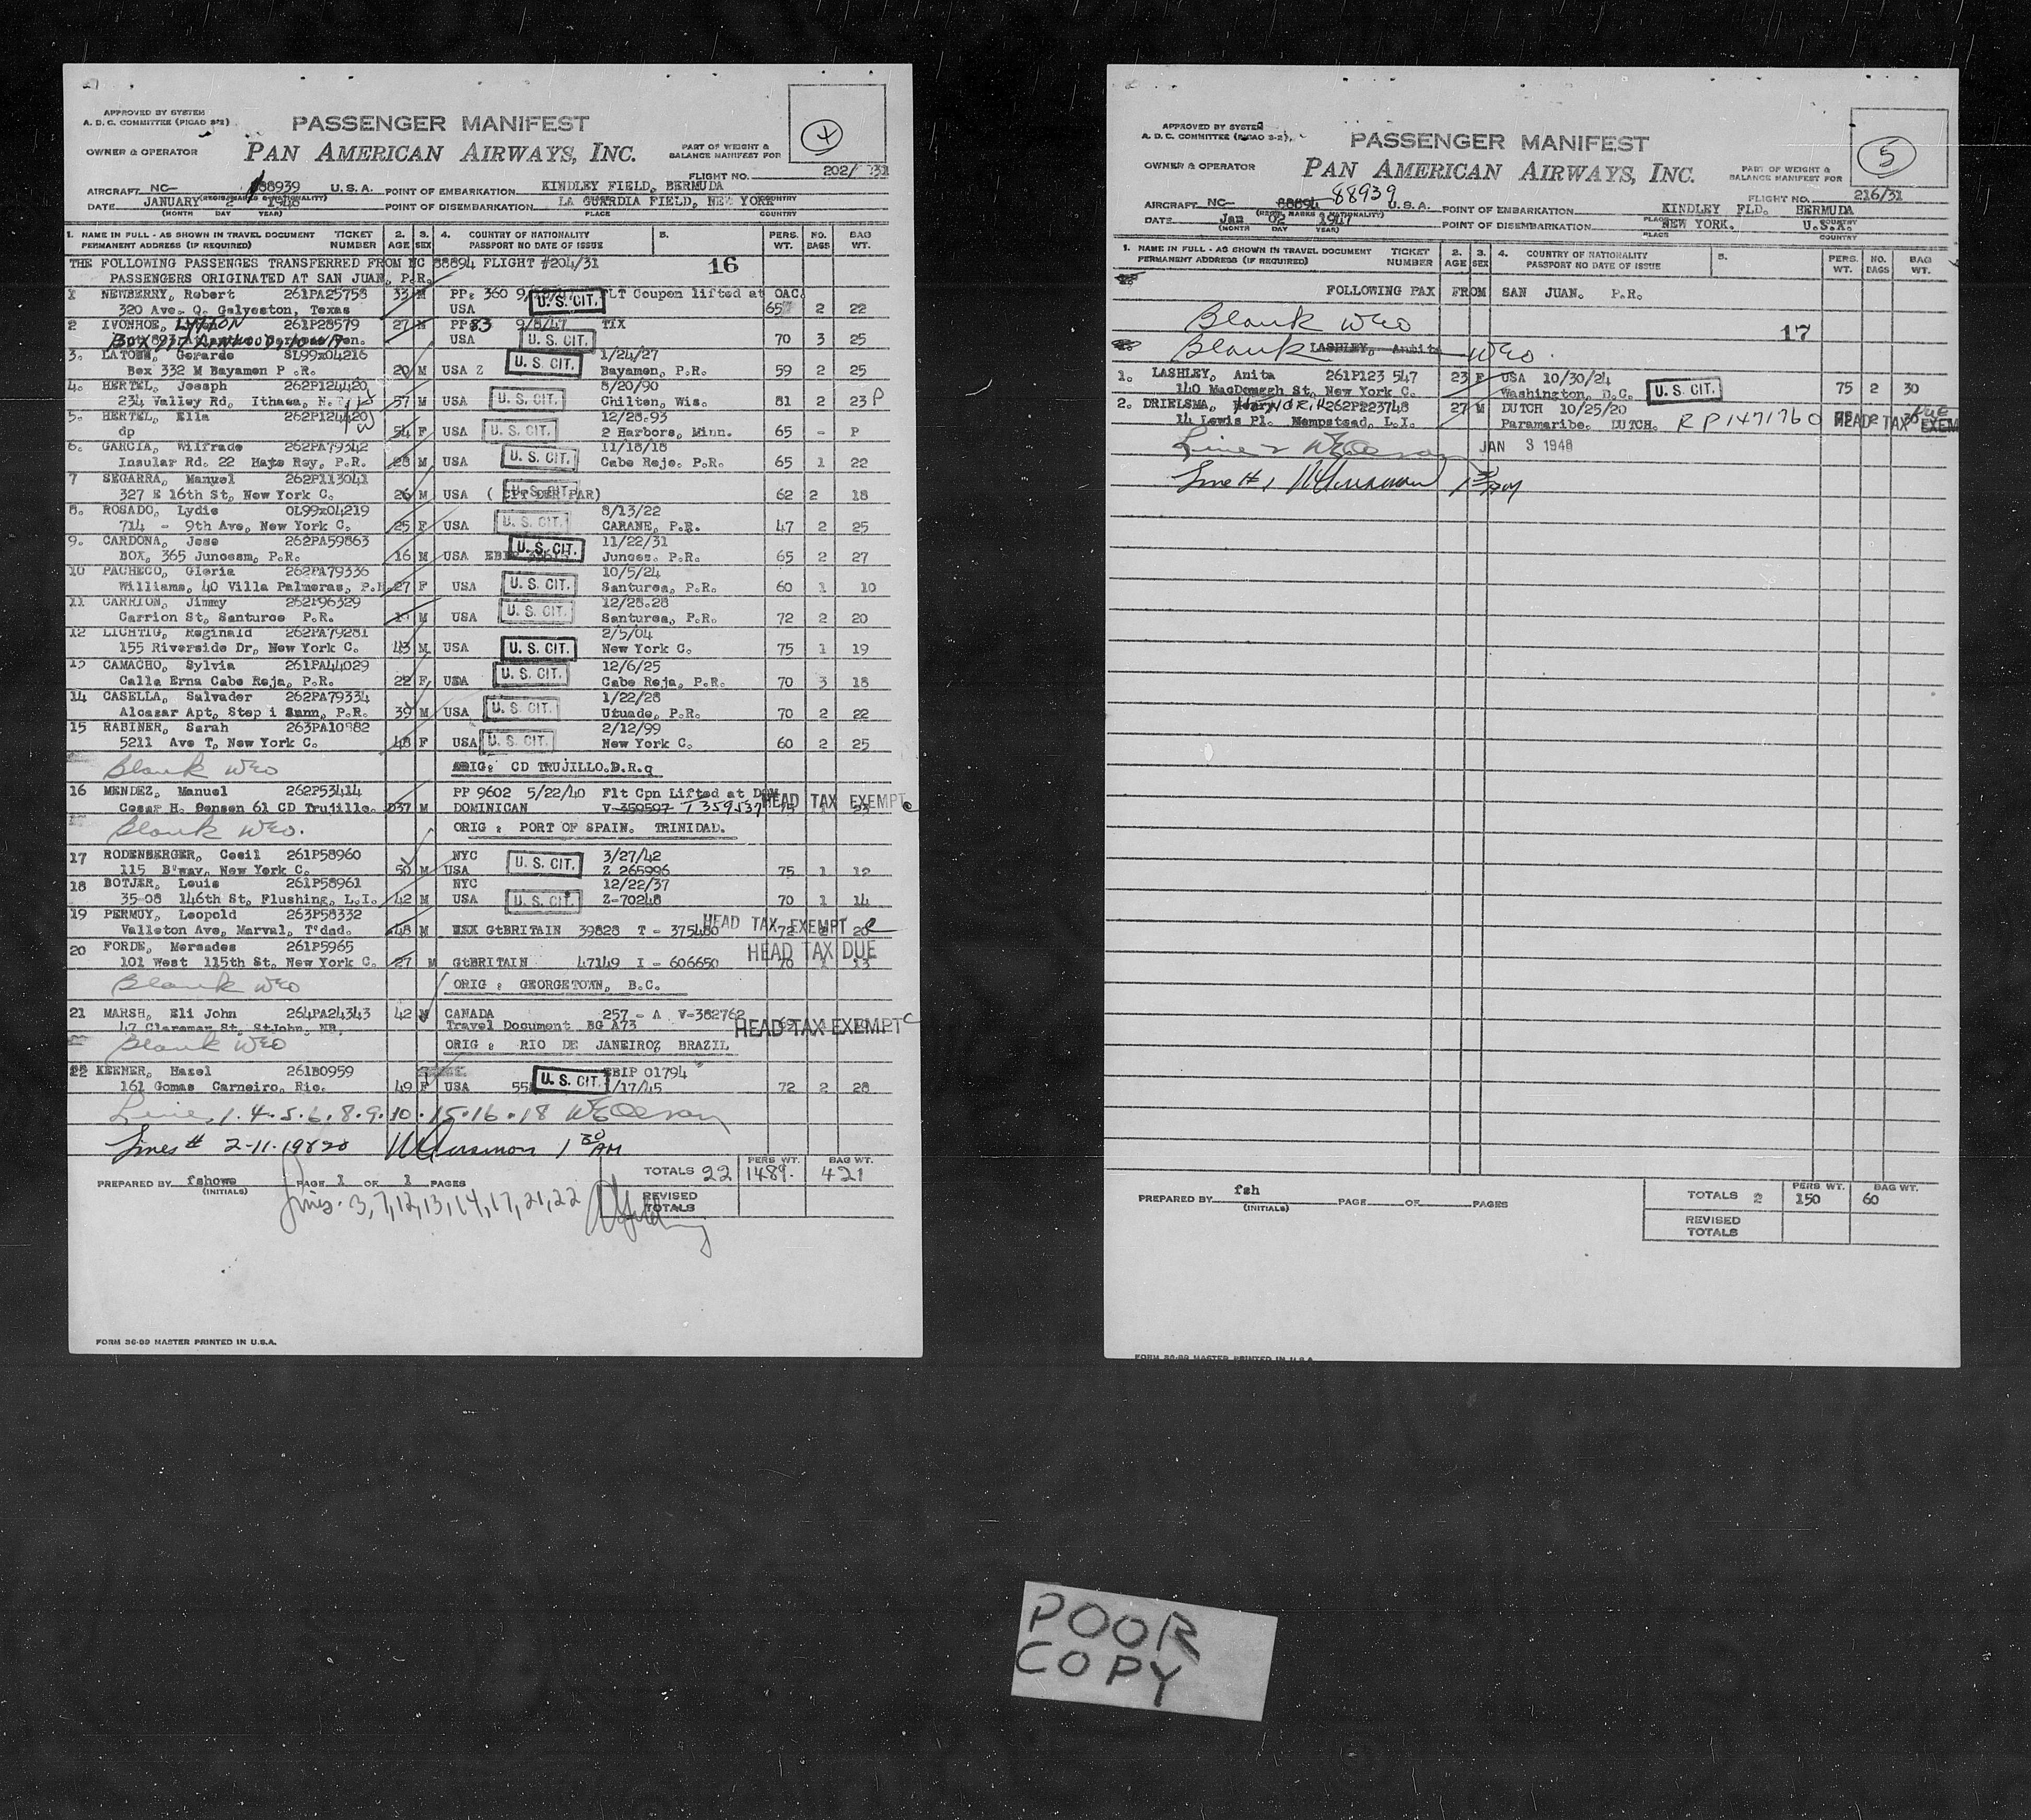 APPROVED BY SYSTEM
A. D. C. COMMITTEE (PICAO S-2)
PASSENGER MANIFEST
4
OWNER & OPERATOR PAN AMERICAN AIRWAYS, INC.
PART OF WEIGHT &
BALANCE MANIFEST FOR
FLIGHT NO. 202/ 31
AIRCRAFT NC- 88939 U.S.A. POINT OF EMBARKATION KINDLEY FIELD, BERMUDA
DATE JANUARY 2 1948 POINT OF DISEMBARKATION LA GUARDIA FIELD, NEW YORK
(MONTH DAY YEAR) PLACE COUNTRY
1. NAME IN FULL - AS SHOWN IN TRAVEL DOCUMENT TICKET 2. 3. 4. COUNTRY OF NATIONALITY 5. PERS. NO. BAG
PERMANENT ADDRESS (IF REQUIRED) NUMBER AGE SEX PASSPORT NO DATE OF ISSUE WT. BAGS WT.
THE FOLLOWING PASSENGES TRANSFERRED FROM NC 88894 FLIGHT #204/31 16
PASSENGERS ORIGINATED AT SAN JUAN, P.R.
1 NEWBERRY, Robert 261PA25758 33 M PP: 360 FLT Coupon lifted at OAC.
320 Ave. O. Galveston, Texas USA U. S. CIT. 65 2 22
2 IVONHOE, LYTTON 261P28579 27 M PP 83 9/8/47 TIX
USA U. S. CIT. 70 3 25
3. LATORR, Gerardo SL99x04216 1/24/27
Box 332 M Bayamon P .R. 20 M USA Z U. S. CIT. Bayamon, P.R. 59 2 25
4. HERTEL, Joesph 262P124420 8/20/90
234 Valley Rd, Ithaca, N.Y. 57 M USA U. S. CIT. Chilton, Wis. 81 2 23 P
5. HERTEL, Ella 262P124420 12/28.93
dp 54 F USA U. S. CIT. 2 Harbors, Minn. 65 - P
6. GARCIA, Wilfrado 262PA79342 11/18/18
Insular Rd. 22 Hato Rey, P.R. 28 M USA U. S. CIT. Cabo Rojo. P.R. 65 1 22
7 SEGARRA, Manuel 262P113041
327 E 16th St, New York C. 26 M USA ( CPT DEP PAR) U. S. CIT. 62 2 18
8. ROSADO, Lydie OL99x04219 8/13/22
714 - 9th Ave, New York C. 25 F USA U. S. CIT. CARANE, P.R. 47 2 25
9. CARDONA, Jose 262PA59863 11/22/31
BOX, 365 Juncosm, P.R. 16 M USA U. S. CIT. Juncos. P.R. 65 2 27
10 PACHECO, Gloria 262PA79336 10/5/24
Williams, 40 Villa Palmeras, P.R 27 F USA U. S. CIT. Santurea, P.R. 60 1 10
11 CARRION, Jimmy 262P96329 12/28.28
Carrion St, Santurce P.R. M USA U. S. CIT. Santurea, P.R. 72 2 20
12 LICHTIG, Reginald 262PA79281 2/5/04
155 Riverside Dr, New York C. 43 M USA U. S. CIT. New York C. 75 1 19
13 CAMACHO, Sylvia 261PA44029 12/6/25
Calla Erna Cabo Roja, P.R. 22 F USA U. S. CIT. Cabo Roja, P.R. 70 3 18
14 CASELLA, Salvador 262PA79334 1/22/28
Alcazar Apt, Stop i Sann, P.R. 39 M USA U. S. CIT. Utuade, P.R. 70 2 22
15 RABINER, Sarah 263PA10982 2/12/99
5211 Ave T, New York C. 48 F USA U. S. CIT. New York C. 60 2 25
Blank WEO ORIG: CD TRUJILLO.D.R.q
16 MENDEZ, Manuel 262P53414 PP 9602 5/22/40 Flt Cpn Lifted at DOM
Cesar H. Penson 61 CD Trujillo. D37 M DOMINICAN V-359597 T 359537 75 1 23 HEAD TAX EXEMPT
Blank WEO. ORIG : PORT OF SPAIN. TRINIDAD.
17 RODENBERGER, Cecil 261P58960 NYC 3/27/42
115 B'way, New York C. 50 M USA U. S. CIT. Z 265996 75 1 12
18 BOTJER, Louis 261P58961 NYC 12/22/37
35-08 146th St, Flushing, L.I. 42 M USA U. S. CIT. Z-70248 70 1 14
19 PERMUY, Leopold 263P58332 HEAD TAX EXEMPT
Valleton Ave, Marval, T'dad. 48 M GtBRITAIN 39828 T - 375480 72 20
20 FORDE, Mercedes 261P5965 HEAD TAX DUE
101 West 115th St, New York C. 27 M GtBRITAIN 47149 I - 606650 70 1 13
Blank WEO ORIG : GEORGETOWN, B.C.
21 MARSH, Eli John 264PA24343 42 M CANADA 257 - A V-382762
47 Claramar St, StJohn, NB. Travel Document BG A73 HEAD TAX EXEMPT
Blank WEO ORIG : RIO DE JANEIROZ BRAZIL
22 KEEMER, Hazel 261B0959 EBIP 01794
161 Gomas Carneiro, Rio. 49 F USA U. S. CIT. 1/17/45 72 2 28
Lines 1.4.5.6.8.9.10.15.16.18 WEOleson
Lines # 2-11-19&20 1 30 AM
TOTALS 22 PERS WT. 1489. BAG WT. 421
PREPARED BY fshowe (INITIALS) PAGE 1 OF 1 PAGES
REVISED
TOTALS
Lines 3,7,12,13,14,17,21,22
FORM 36-99 MASTER PRINTED IN U.S.A.
APPROVED BY SYSTEM
A. D. C. COMMITTEE (PICAO S-2)
PASSENGER MANIFEST
5
OWNER & OPERATOR PAN AMERICAN AIRWAYS, INC.
PART OF WEIGHT &
BALANCE MANIFEST FOR
FLIGHT NO. 216/31
AIRCRAFT NC- 88894 88939 U.S.A. POINT OF EMBARKATION KINDLEY FLD. BERMUDA
DATE Jan 02 1947 POINT OF DISEMBARKATION NEW YORK. U.S.A.
(MONTH DAY YEAR) PLACE COUNTRY
1. NAME IN FULL - AS SHOWN IN TRAVEL DOCUMENT TICKET 2. 3. 4. COUNTRY OF NATIONALITY 5. PERS. NO. BAG
PERMANENT ADDRESS (IF REQUIRED) NUMBER AGE SEX PASSPORT NO DATE OF ISSUE WT. BAGS WT.
FOLLOWING PAX FROM SAN JUAN. P.R.
Blank WEO
17
Blank LASHLEY, Anbita WEO.
1. LASHLEY, Anita 261P123 547 23 F USA 10/30/24
140 MacDouggh St, New York C. Washington, D.C. U. S. CIT. 75 2 30
2. DRIELSMA, 262P223748 27 M DUTCH 10/25/20
14 Lewis Pl. Hempstead, L.I. Paramaribo. DUTCH. RP1471760 HEAD TAX EXEM
Line 2 WEOleson JAN 3 1948
Line #1 1 30 AM
PREPARED BY fsh (INITIALS) PAGE OF PAGES
TOTALS 2 PERS WT. 150 BAG WT. 60
REVISED
TOTALS
FORM 36-99 MASTER PRINTED IN U.S.A.
POOR
COPY